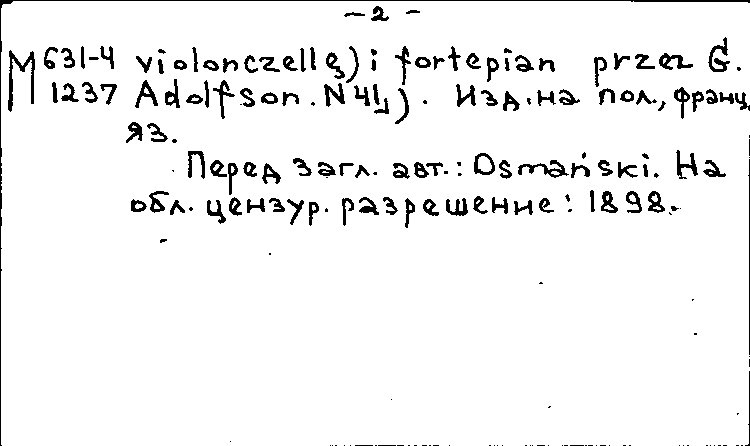 - 2 -
М 631-4 violonczellę) i fortepian przez G.
1237 Adolfson. N 41). Изд. на пол., франц.
яз.
Перед загл. авт.: Osmański. На
обл. цензур. разрешение: 1898.